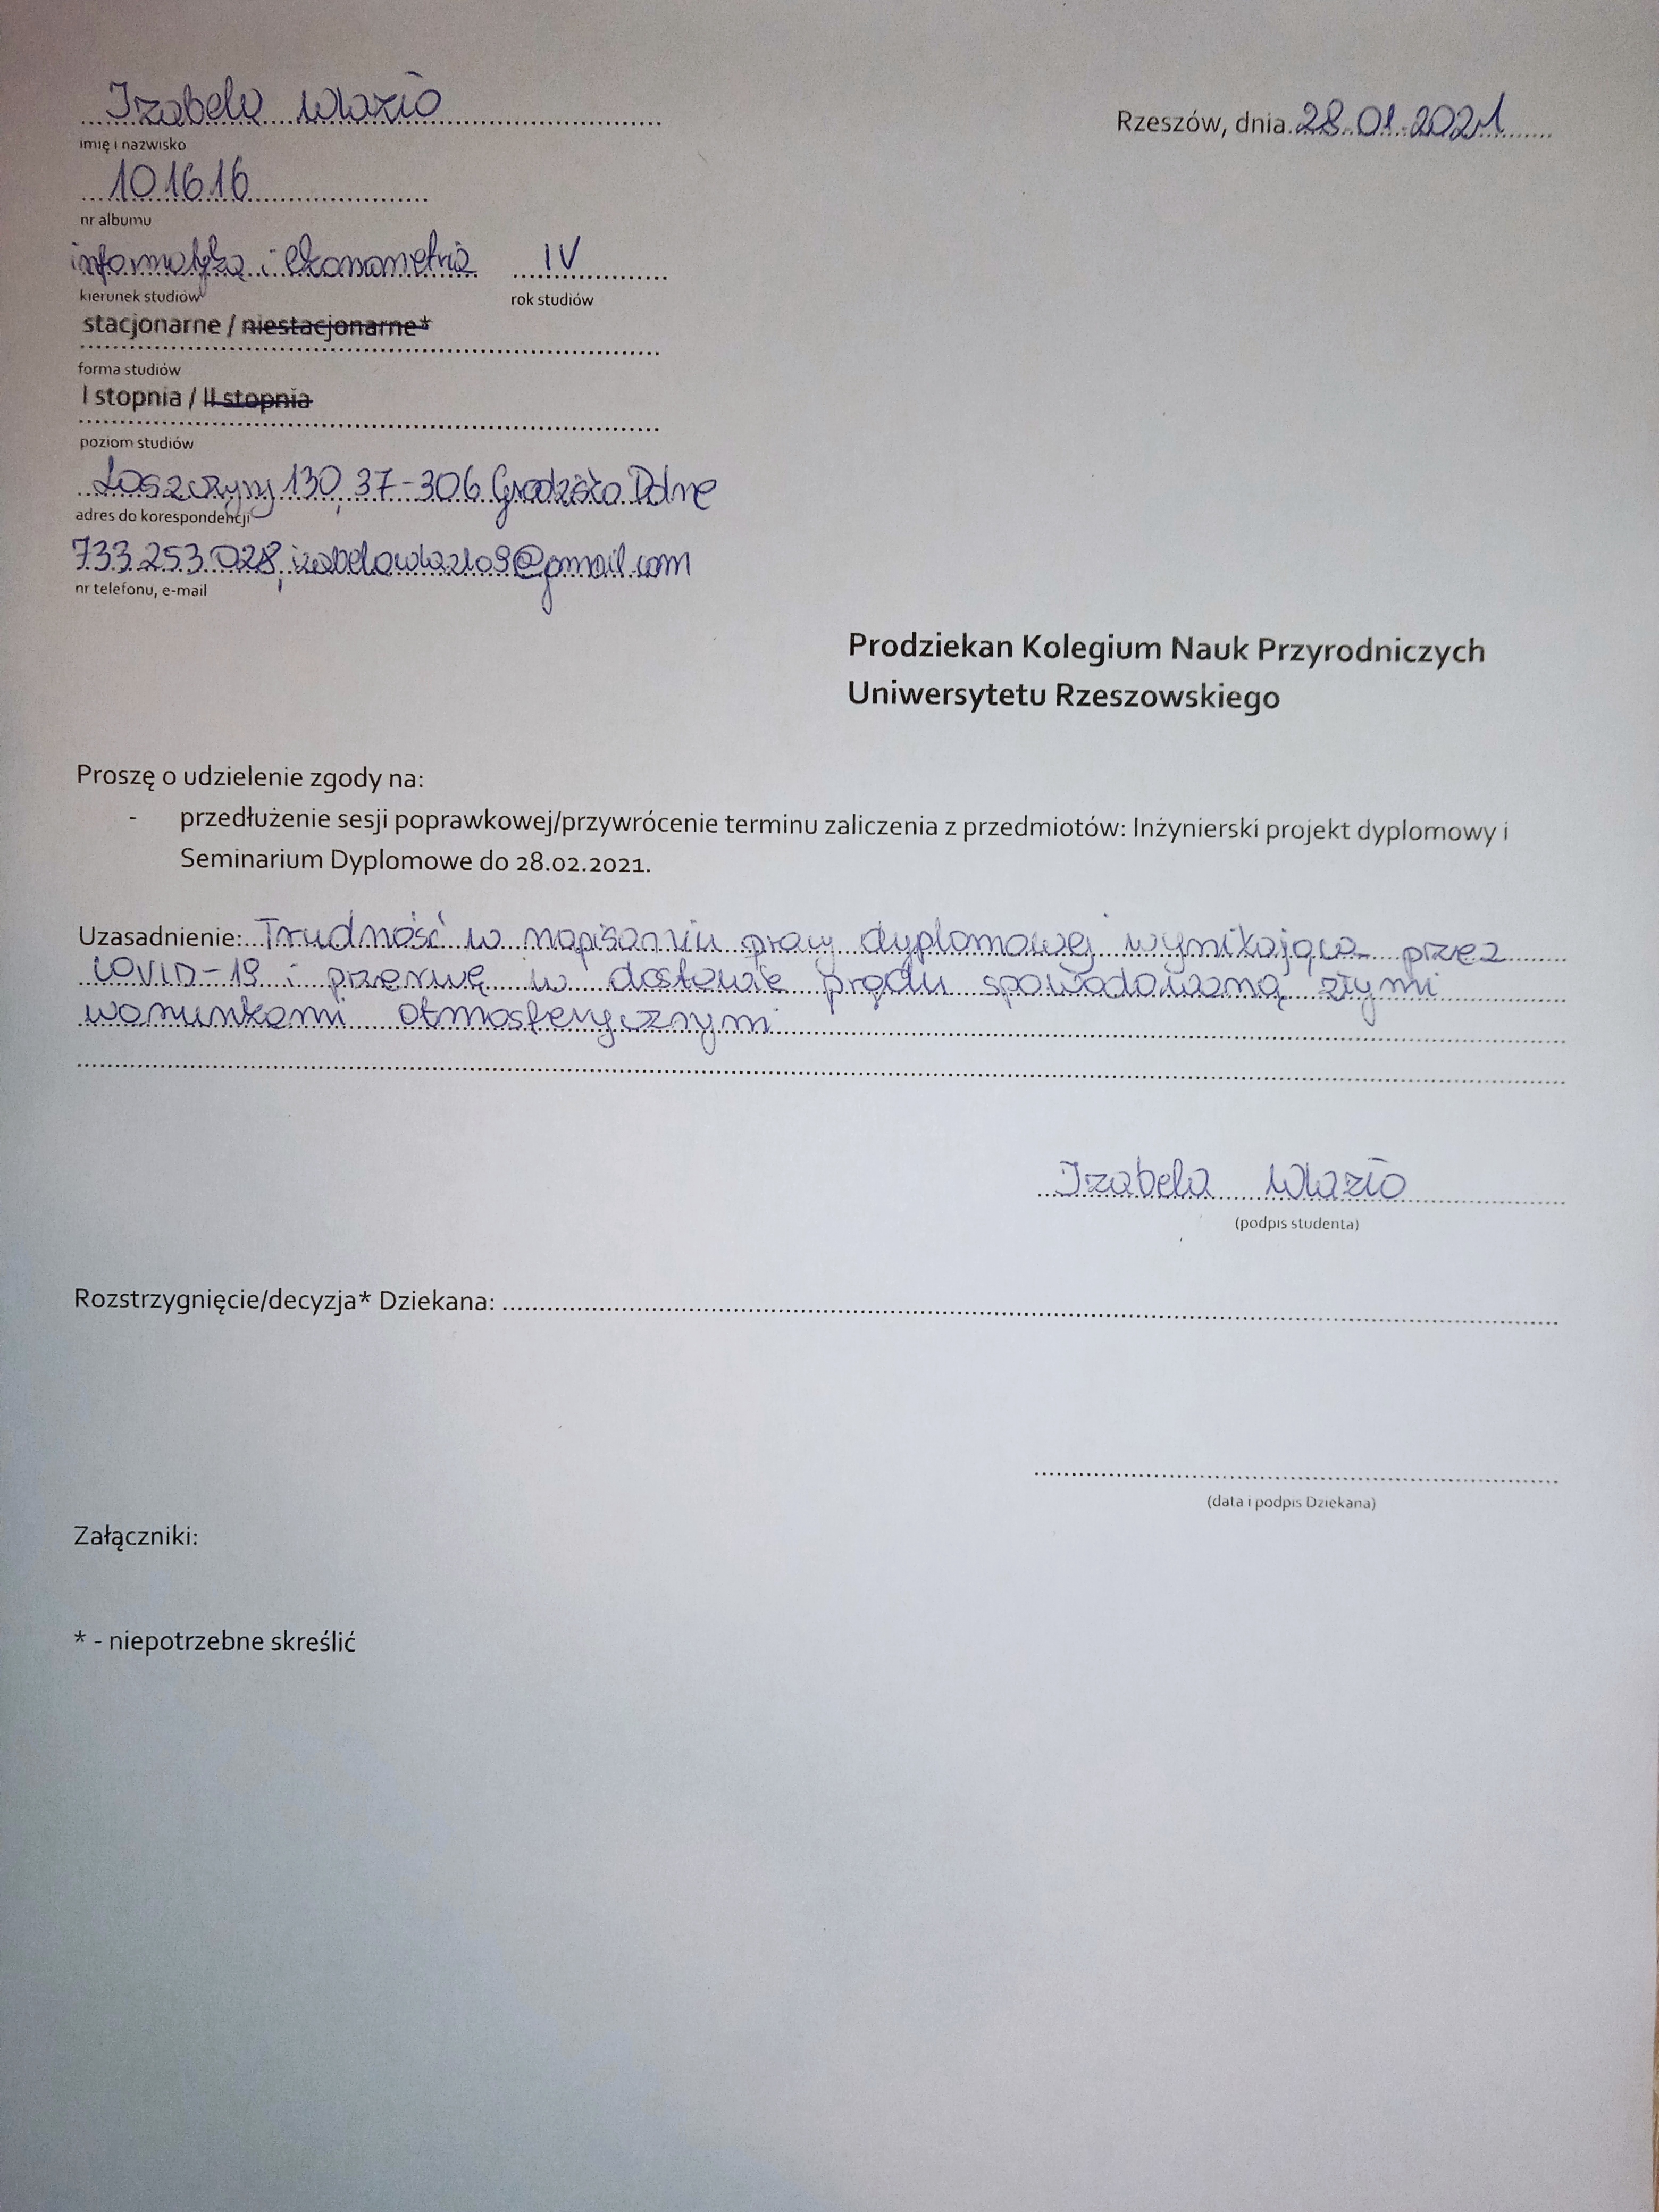 Izabela Wlazło
Rzeszów, dnia 28.01.2021
imię i nazwisko
101616
nr albumu
informatyka i ekonometria IV
kierunek studiów rok studiów
stacjonarne / niestacjonarne*
forma studiów
I stopnia / II stopnia
poziom studiów
Laszczyny 130, 37-306 Grodzisko Dolne
adres do korespondencji
733 253 028, izabelawlazlo9@gmail.com
nr telefonu, e-mail
Prodziekan Kolegium Nauk Przyrodniczych
Uniwersytetu Rzeszowskiego
Proszę o udzielenie zgody na:
- przedłużenie sesji poprawkowej/przywrócenie terminu zaliczenia z przedmiotów: Inżynierski projekt dyplomowy i
Seminarium Dyplomowe do 28.02.2021.
Uzasadnienie: Trudność w napisaniu pracy dyplomowej wynikająca przez
COVID-19 i przerwę w dostawie prądu spowodowaną złymi
warunkami atmosferycznymi
Izabela Wlazło
(podpis studenta)
Rozstrzygnięcie/decyzja* Dziekana:
(data i podpis Dziekana)
Załączniki:
* - niepotrzebne skreślić